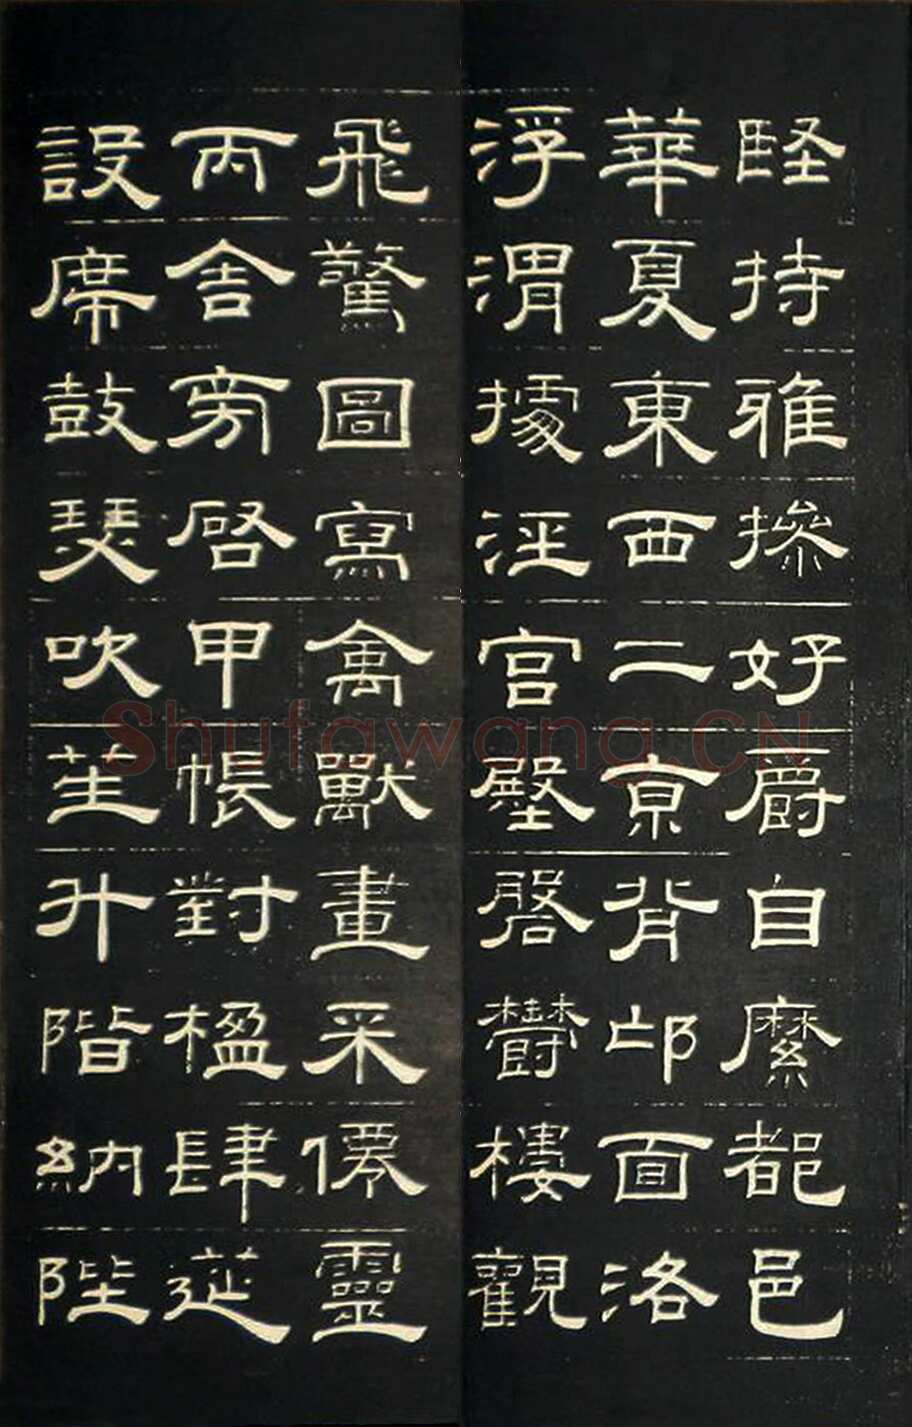 堅持雅摻好爵自縻都邑
華夏東西二亰背邙面洛
浮渭據涇宮壂盤欝樓觀
飛驚圖寫禽獸畫采僊靈
丙舍旁啓甲帳對楹肆筵
設席鼓瑟吹笙升階納陛
Shufawang.CN